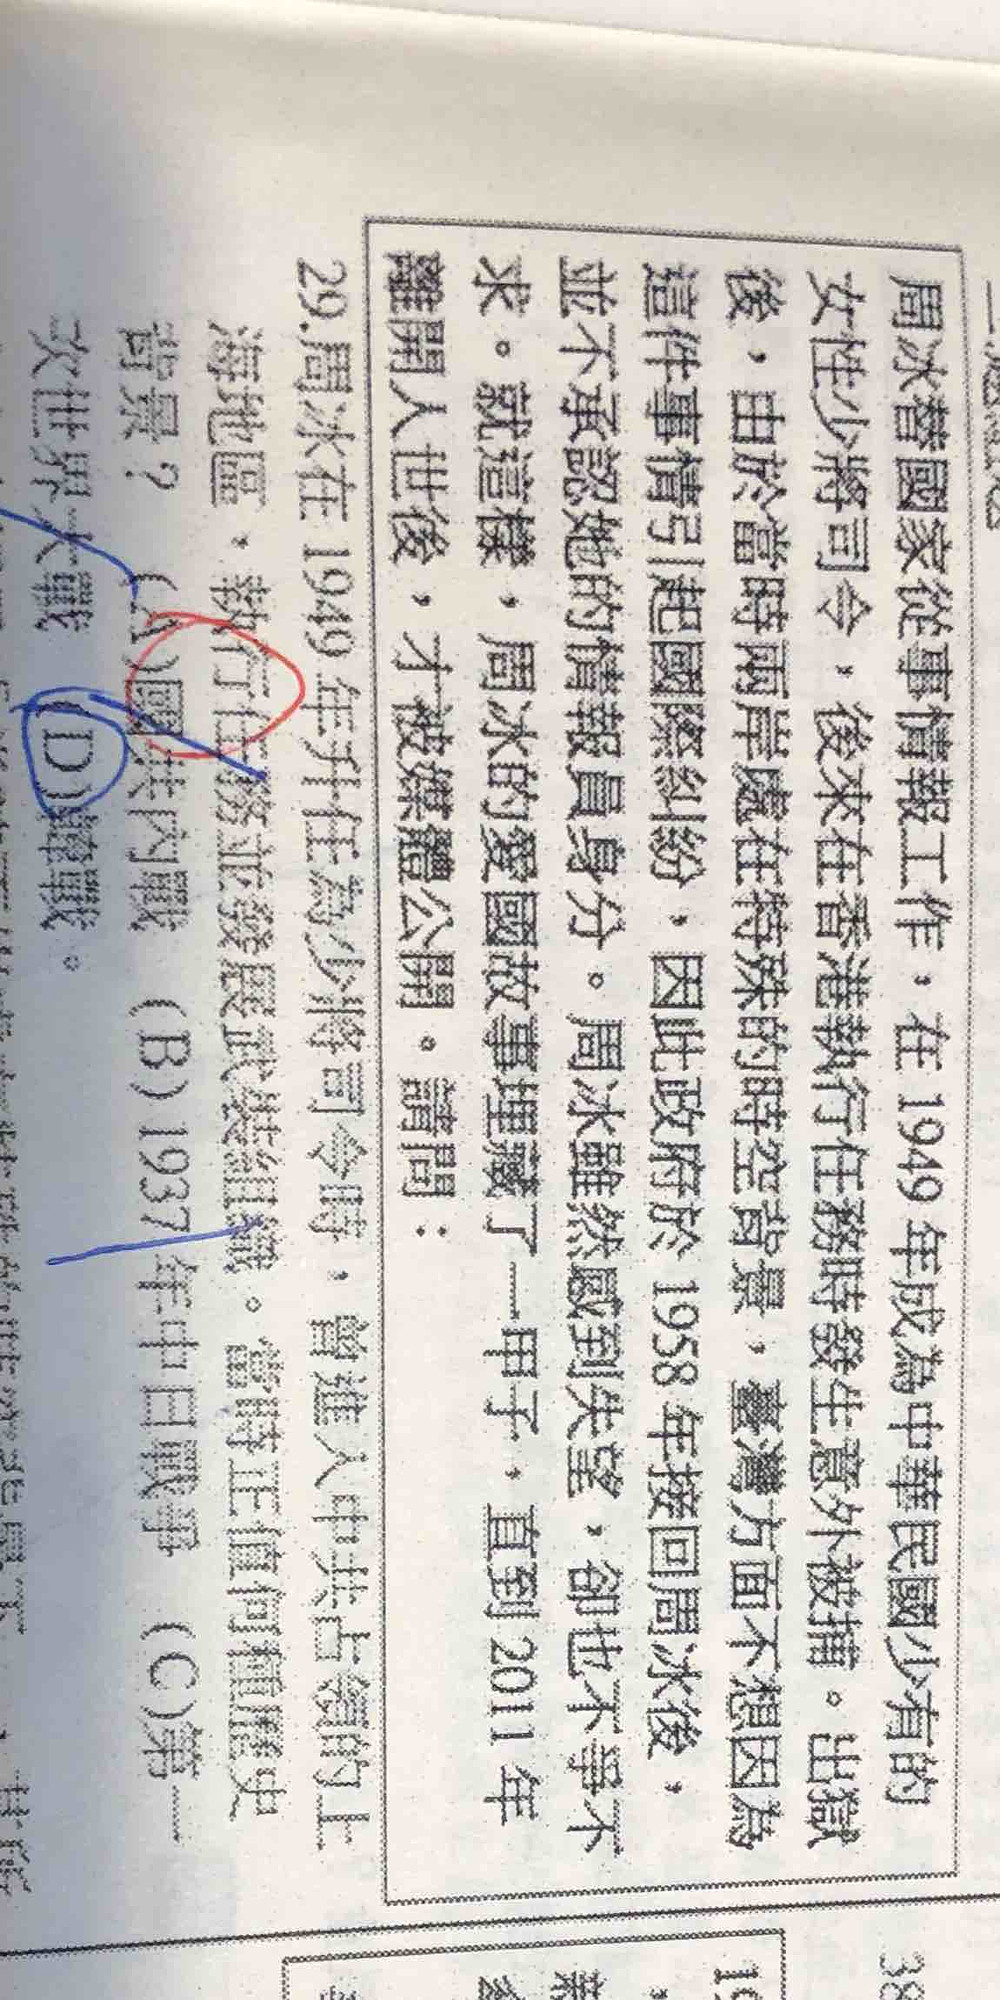 周冰替國家從事情報工作，在 1949 年成為中華民國少有的
女性少將司令，後來在香港執行任務時發生意外被捕。出獄
後，由於當時兩岸處在特殊的時空背景，臺灣方面不想因為
這件事情引起國際糾紛，因此政府於 1958 年接回周冰後，
並不承認她的情報員身分。周冰雖然感到失望，卻也不爭不
求。就這樣，周冰的愛國故事埋藏了一甲子，直到 2011 年
離開人世後，才被媒體公開。請問：
29.周冰在 1949 年升任為少將司令時，曾進入中共占領的上
海地區，執行任務並發展武裝組織。當時正值何種歷史
背景？ (A)國共內戰 (B)1937 年中日戰爭 (C)第一
次世界大戰 (D)韓戰。
38